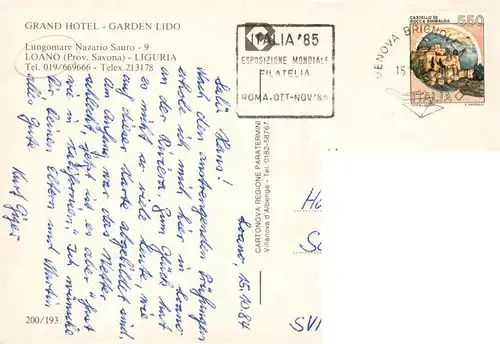 GRAND HOTEL - GARDEN LIDO
Lungomare Nazario Sauro - 9
LOANO (Prov. Savona) - LIGURIA
Tel. 019/669666 - Telex 213178
Loano, 15.10.84
Sali Hans!
Nach den anstrengenden Prüfungen
erhole ich mich hier in Loano
an der Riviera. Zum Glück hat
es nicht so viele Leute, wie
auf dieser Karte abgebildet sind.
Am Anfang war das Wetter
schlecht, jetzt ist es aber "fast
wie in Kalifornien". Ich wünsche
Dir, Deinen Eltern und Martin
alles Gute
Kurt
200/193
CARTONOVA REGIONE PARATERMINI
Villanova d'Albenga - Tel. 0182-58767
ITALIA '85
ESPOSIZIONE MONDIALE
FILATELIA
ROMA-OTT-NOV '85
GENOVA BRIGNOLE
15
CASTELLO DI
ROCCA SINIBALDA
550
ITALIA